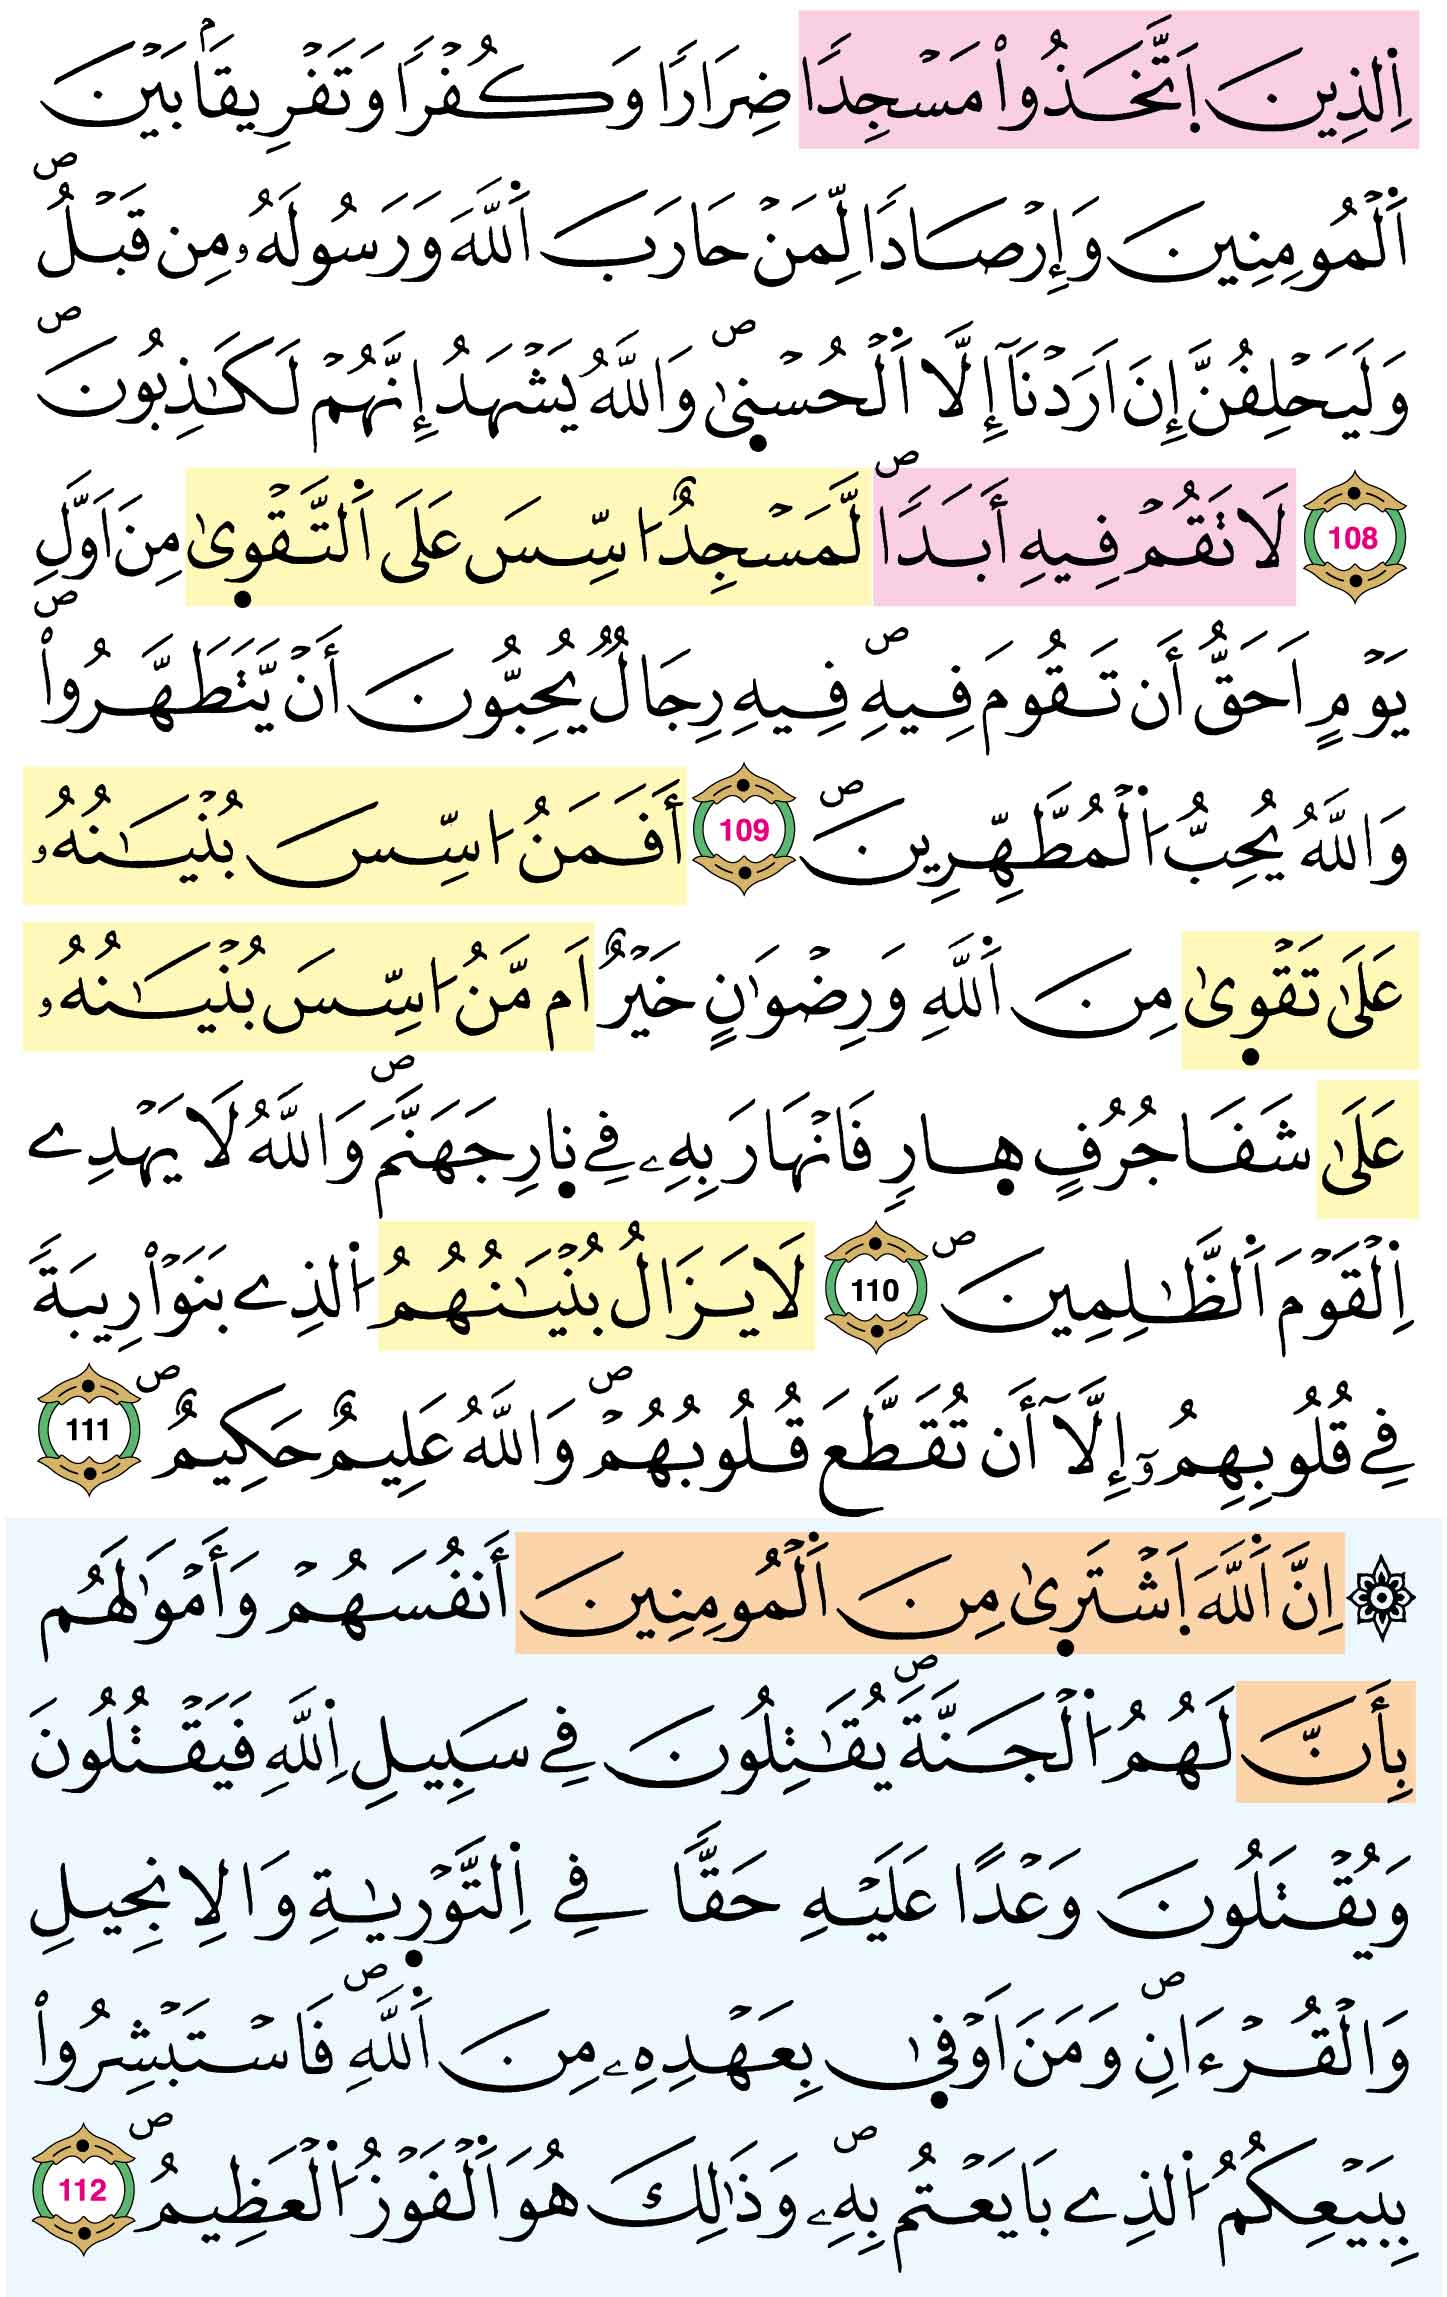 اِ۬لذِينَ اَ۪تَّخَذُواْ مَسْجِداٗ ضِرَاراٗ وَكُفْراٗ وَتَفْرِيقاَۢ بَيْنَ
اَ۬لْمُومِنِينَ وَإِرْصَاداٗ لِّمَنْ حَارَبَ اَ۬للَّهَ وَرَسُولَهُۥ مِن قَبْلُۖ
وَلَيَحْلِفُنَّ إِنَ اَرَدْنَآ إِلَّا اَ۬لْحُسْن۪يٰۖ وَاللَّهُ يَشْهَدُ إِنَّهُمْ لَكَٰذِبُونَۖ
108 لَا تَقُمْ فِيهِ أَبَداٗۖ لَّمَسْجِدٌ ا۟سِّسَ عَلَى اَ۬لتَّقْو۪يٰ مِنَ اَوَّلِ
يَوْمٍ اَحَقُّ أَن تَقُومَ فِيهِۖ فِيهِ رِجَالٞ يُحِبُّونَ أَنْ يَّتَطَهَّرُواْۖ
وَاللَّهُ يُحِبُّ اُ۬لْمُطَّهِّرِينَۖ 109 أَفَمَنُ ا۟سِّسَ بُنْيَٰنُهُۥ
عَلَىٰ تَقْو۪يٰ مِنَ اَ۬للَّهِ وَرِضْوَٰنٍ خَيْرٌ اَم مَّنُ ا۟سِّسَ بُنْيَٰنُهُۥ
عَلَىٰ شَفَا جُرُفٍ ه۪ارٖ فَانْهَارَ بِهِۦ فِے ن۪ارِ جَهَنَّمَۖ وَاللَّهُ لَا يَهْدِے
اِ۬لْقَوْمَ اَ۬لظَّٰلِمِينَۖ 110 لَا يَزَالُ بُنْيَٰنُهُمُ اُ۬لذِے بَنَوْاْ رِيبَةٗ
فِے قُلُوبِهِمُۥٓ إِلَّآ أَن تُقَطَّعَ قُلُوبُهُمْۖ وَاللَّهُ عَلِيمٌ حَكِيمٌۖ 111
۞ اِنَّ اَ۬للَّهَ اَ۪شْتَر۪يٰ مِنَ اَ۬لْمُومِنِينَ أَنفُسَهُمْ وَأَمْوَٰلَهُم
بِأَنَّ لَهُمُ اُ۬لْجَنَّةَۖ يُقَٰتِلُونَ فِے سَبِيلِ اِ۬للَّهِ فَيَقْتُلُونَ
وَيُقْتَلُونَ وَعْداً عَلَيْهِ حَقّاٗ فِے اِ۬لتَّوْر۪يٰةِ وَالِانجِيلِ
وَالْقُرْءَانِۖ وَمَنَ اَوْف۪يٰ بِعَهْدِهِۦ مِنَ اَ۬للَّهِۖ فَاسْتَبْشِرُواْ
بِبَيْعِكُمُ اُ۬لذِے بَايَعْتُم بِهِۦۖ وَذَٰلِكَ هُوَ اَ۬لْفَوْزُ اُ۬لْعَظِيمُۖ 112